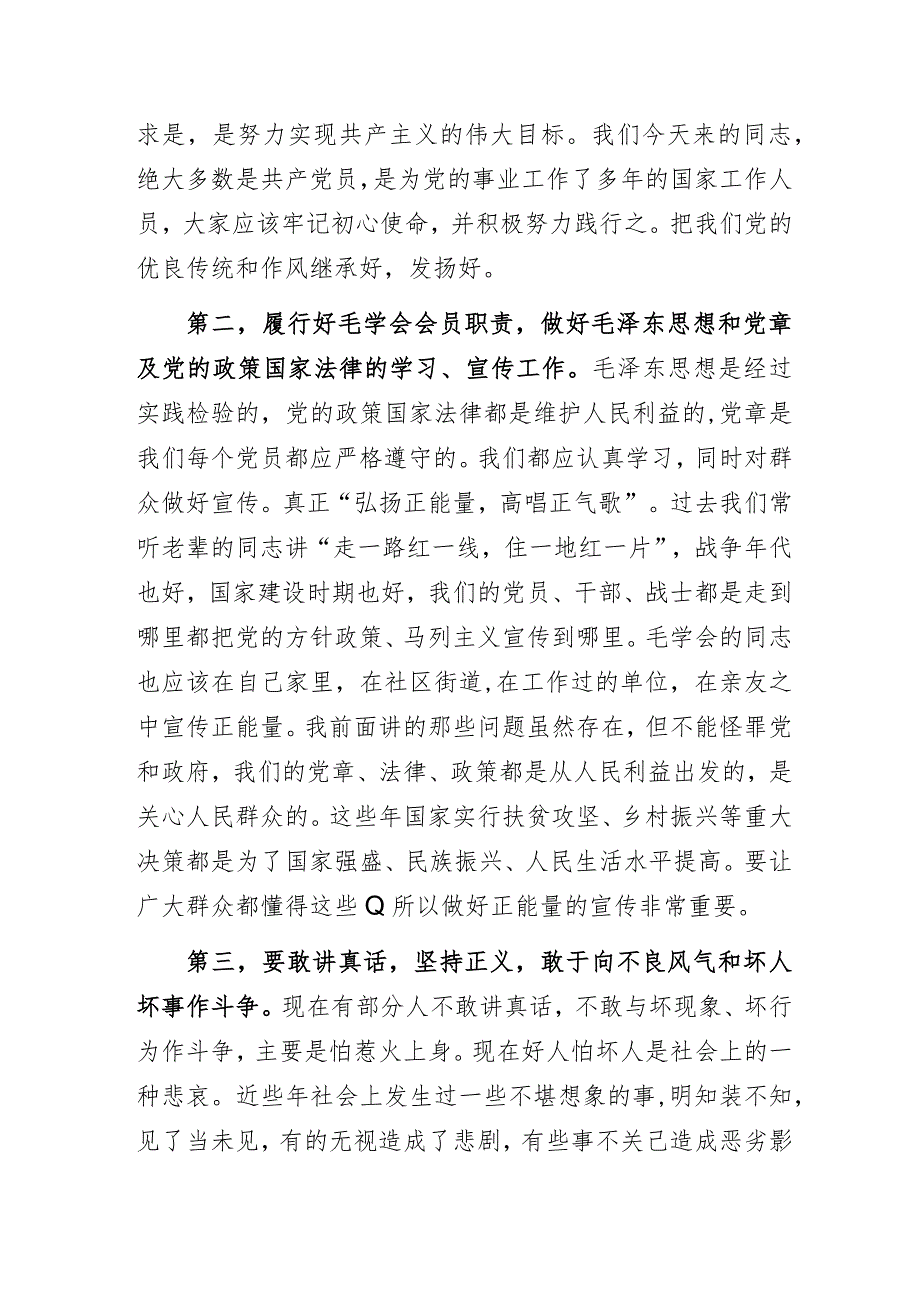 求是，是努力实现共产主义的伟大目标。我们今天来的同志，
绝大多数是共产党员,是为党的事业工作了多年的国家工作人
员，大家应该牢记初心使命，并积极努力践行之。把我们党的
优良传统和作风继承好，发扬好。
第二，履行好毛学会会员职责，做好毛泽东思想和党章
及党的政策国家法律的学习、宣传工作。毛泽东思想是经过
实践检验的，党的政策国家法律都是维护人民利益的,党章是
我们每个党员都应严格遵守的。我们都应认真学习，同时对群
众做好宣传。真正“弘扬正能量，高唱正气歌”。过去我们常
听老辈的同志讲“走一路红一线，住一地红一片”，战争年代
也好，国家建设时期也好，我们的党员、干部、战士都是走到
哪里都把党的方针政策、马列主义宣传到哪里。毛学会的同志
也应该在自己家里，在社区街道,在工作过的单位，在亲友之
中宣传正能量。我前面讲的那些问题虽然存在，但不能怪罪党
和政府，我们的党章、法律、政策都是从人民利益出发的，是
关心人民群众的。这些年国家实行扶贫攻坚、乡村振兴等重大
决策都是为了国家强盛、民族振兴、人民生活水平提高。要让
广大群众都懂得这些Q所以做好正能量的宣传非常重要。
第三，要敢讲真话，坚持正义，敢于向不良风气和坏人
坏事作斗争。现在有部分人不敢讲真话，不敢与坏现象、坏行
为作斗争，主要是怕惹火上身。现在好人怕坏人是社会上的一
种悲哀。近些年社会上发生过一些不堪想象的事,明知装不知，
见了当未见，有的无视造成了悲剧，有些事不关己造成恶劣影